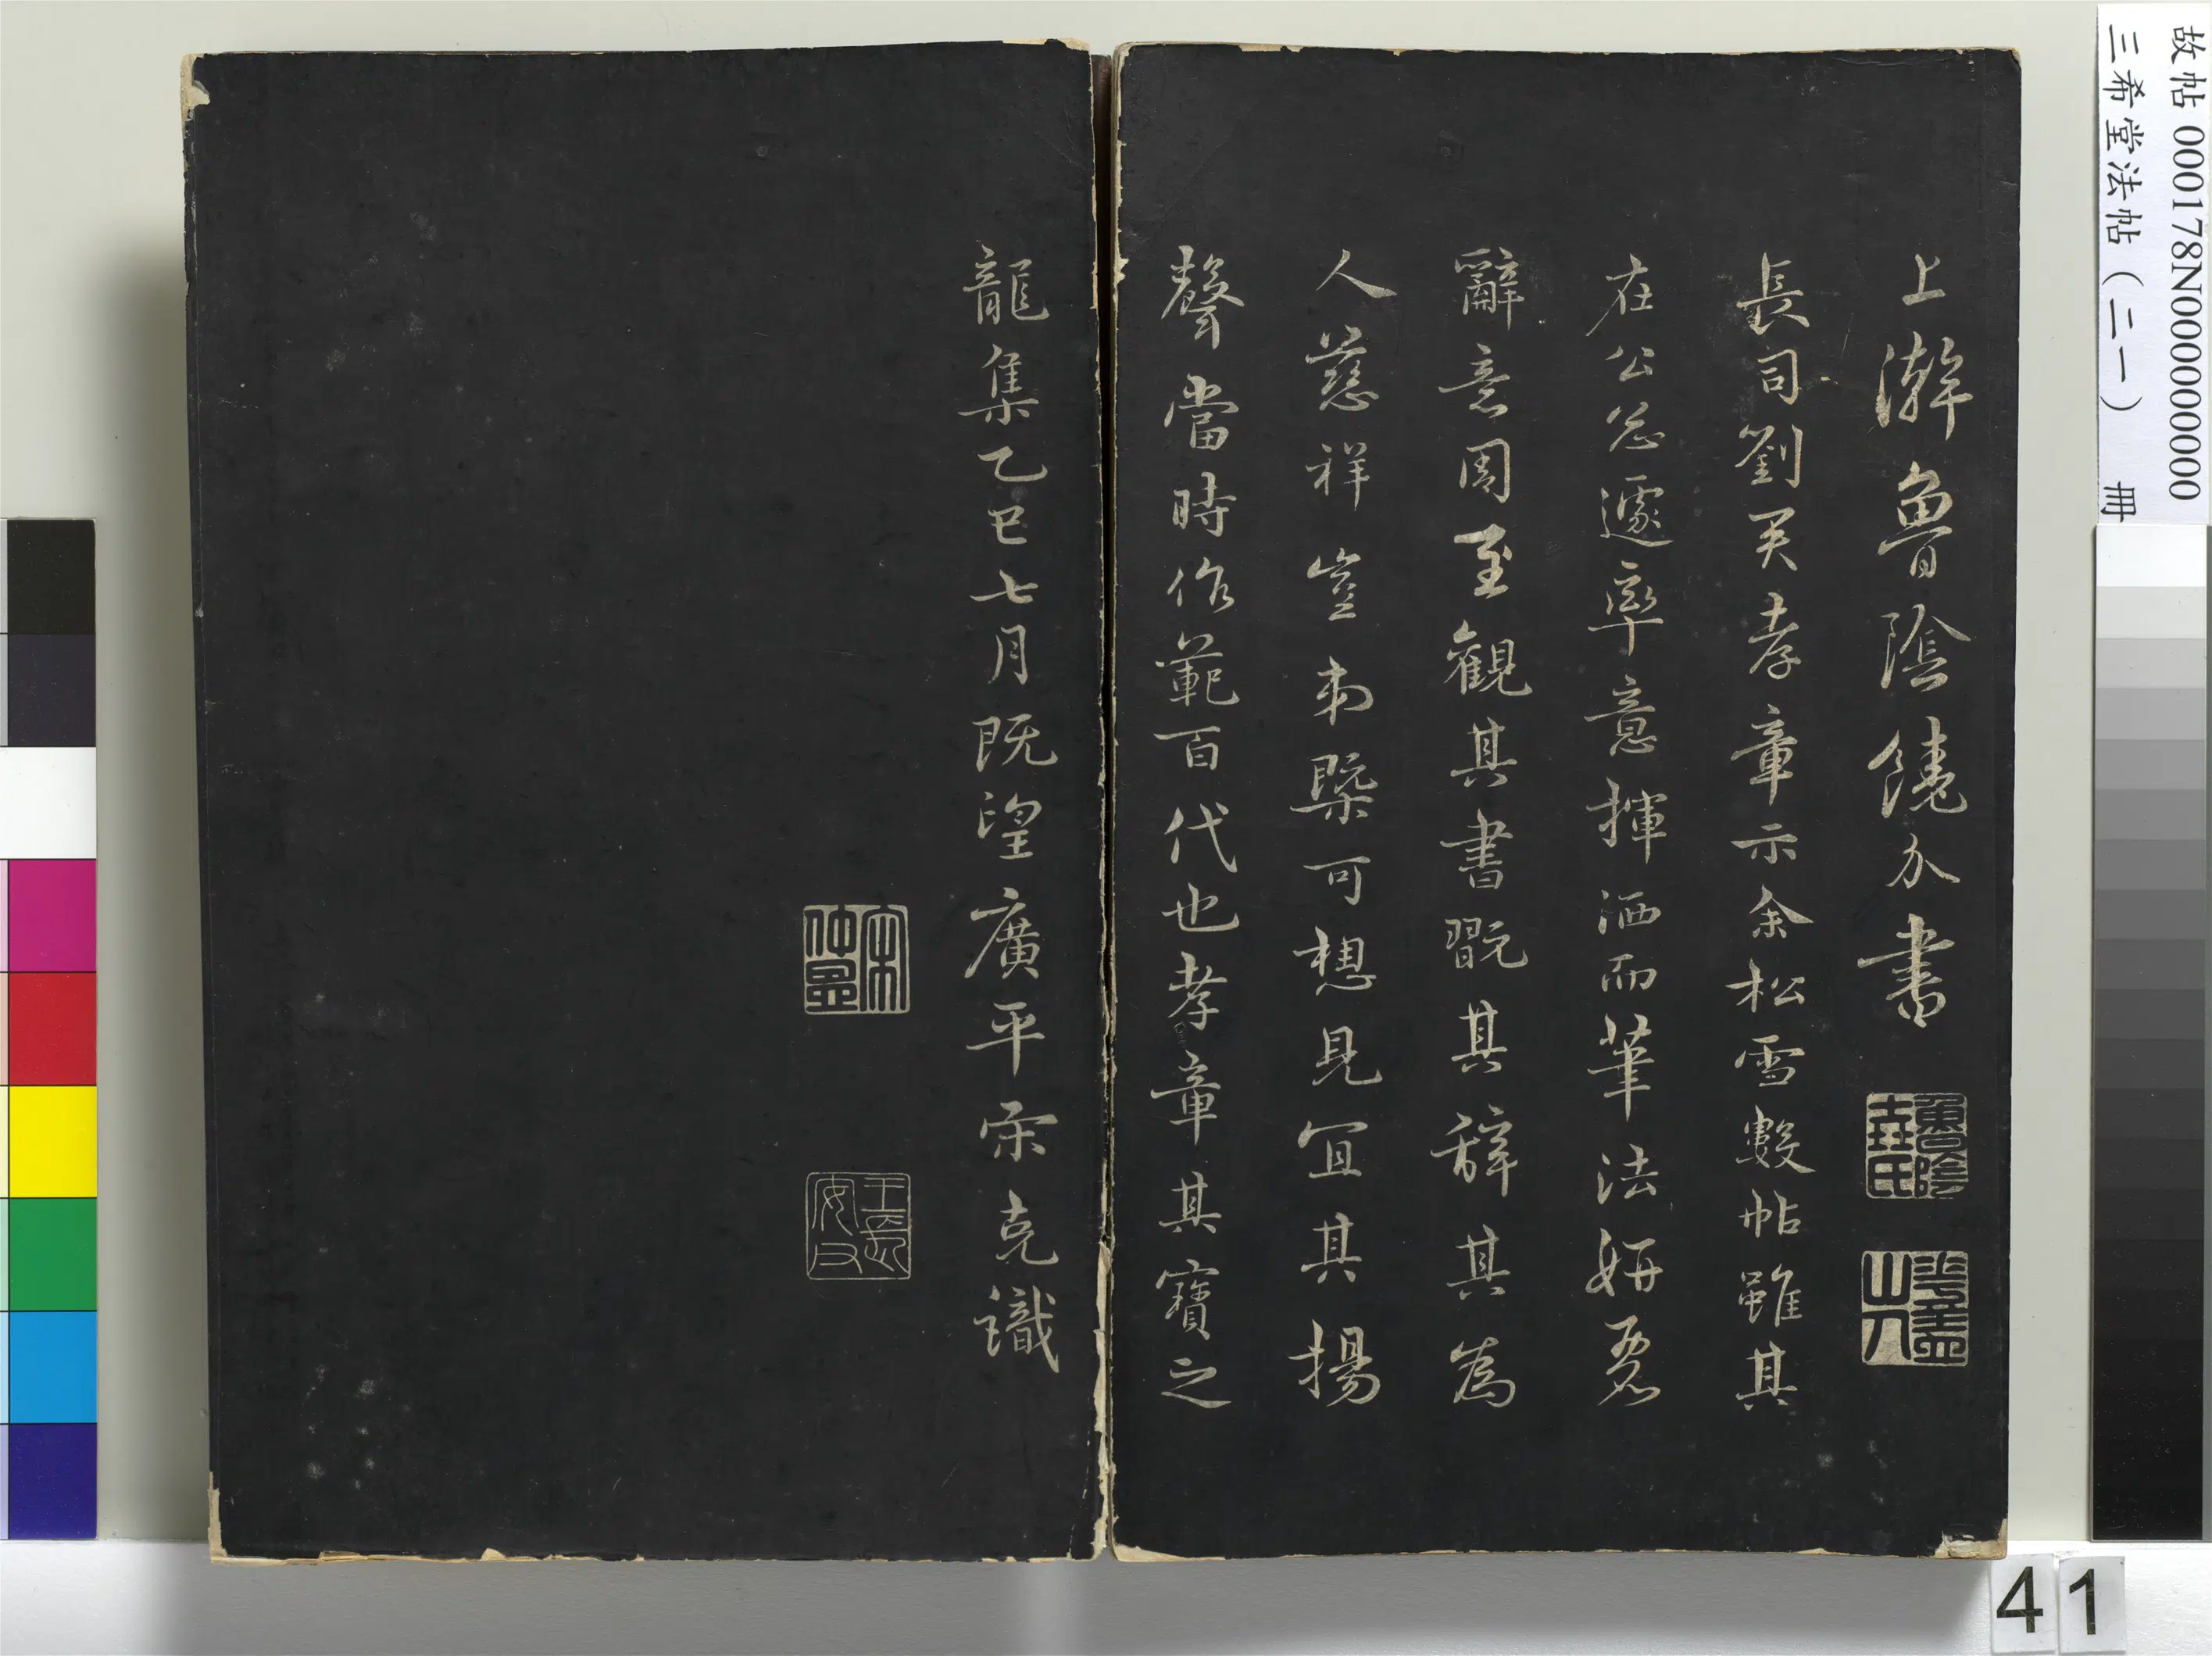 上澣魯陰饒介書
長司劉君孝章示余松雪數帖雖其
在公怱遽率意揮洒而筆法妍麗
辭意周至觀其書翫其辞其為
人慈祥豈弟槩可想見宜其揚
聲當時作範百代也孝章其寶之
龍集乙巳七月既望廣平宋克識
宋仲溫
故帖 000178N000000000
三希堂法帖(二一) 冊
41